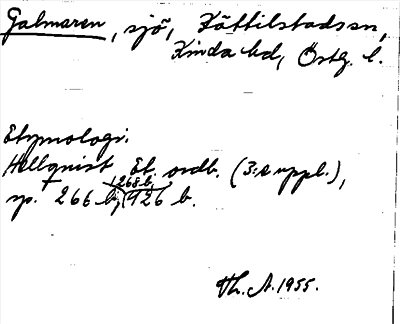 Galmaren, sjö, Kättilstads sn,
Kinda hd, Östg. l.
Etymologi.
Hellquist Et. ordb. (3:e uppl.),
268 b,
sp. 266 b, 926 b.
Th. A. 1955.